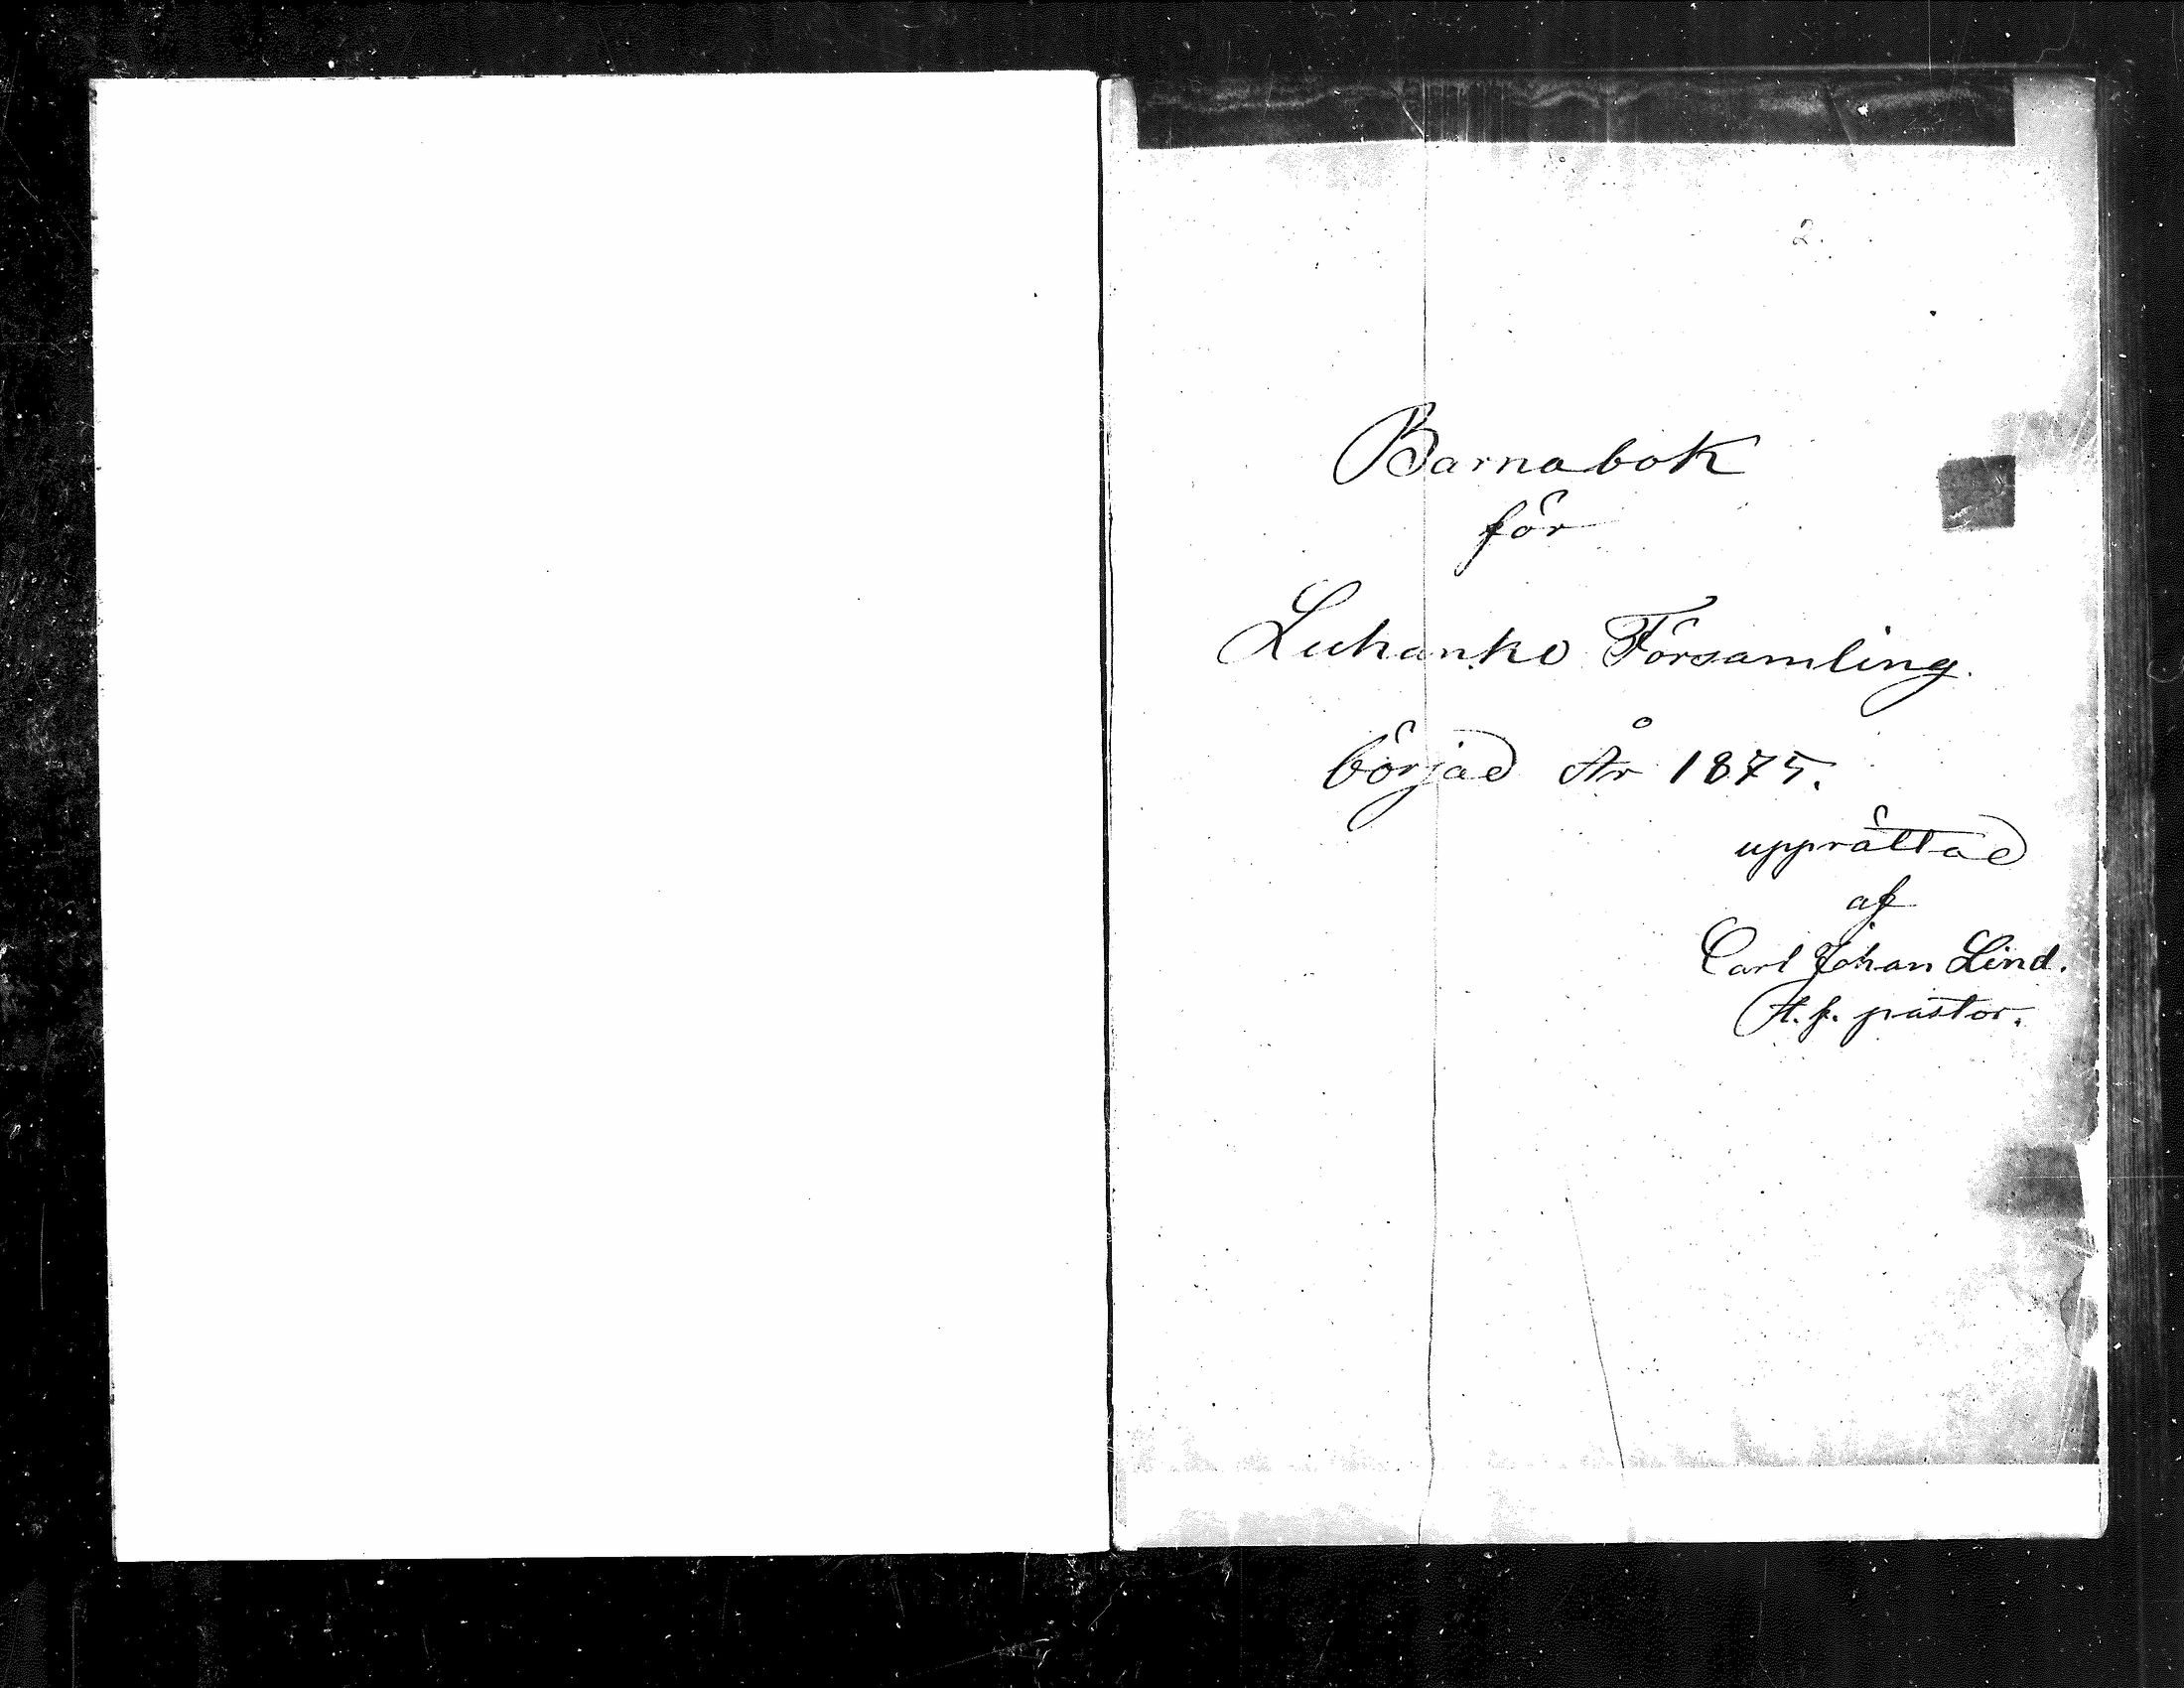 2.
Barnabok
för
Luhanko Församling.
börjad År 1875.
upprättad
af
Carl Johan Lind.
t.f. pastor.